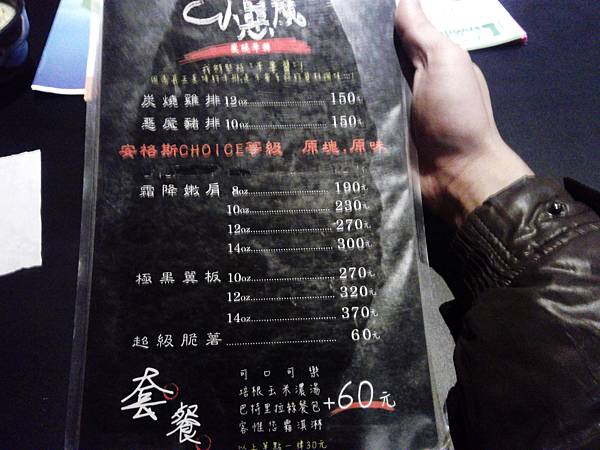 小惡魔
炭燒牛排
炭燒雞排 12oz 150元
惡魔豬排 10oz 150元
安格斯CHOICE等級 原塊.原味
霜降嫩肩 8oz 190元
10oz 230元
12oz 270元
14oz 300元
極黑翼板 10oz 270元
12oz 320元
14oz 370元
超級脆薯 60元
套餐
可口可樂
培根玉米濃湯
巴特里拉絲餐包
客惟您霜淇淋
+60元
以上單點一律30元